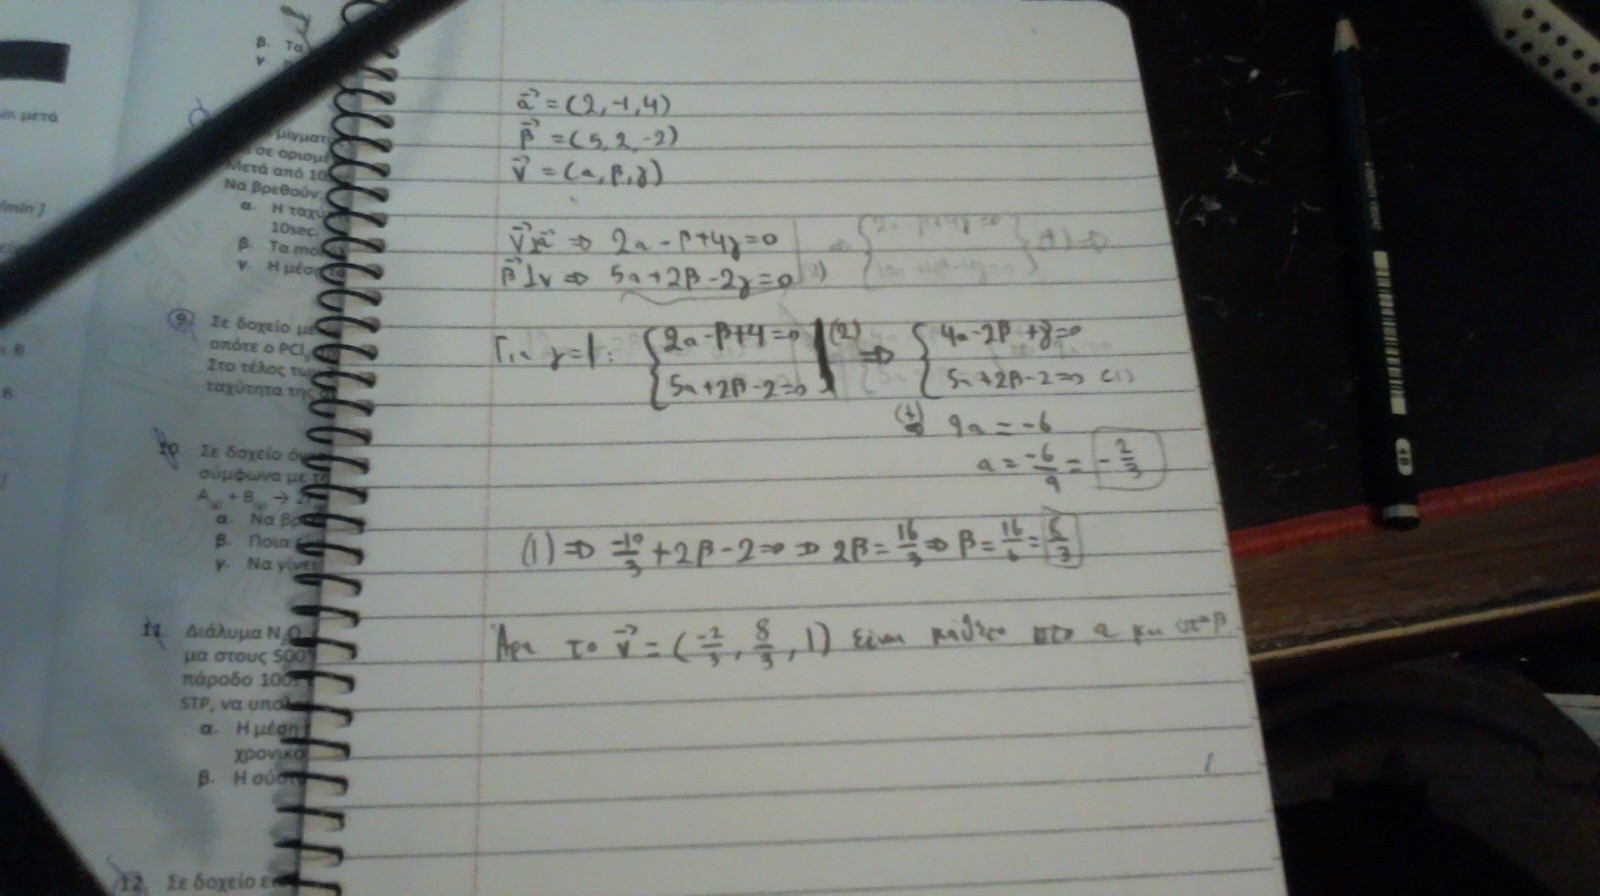 β. Τα
γ.
min μετά
μίγματ
σε ορισμέ
Μετά από 10
Να βρεθούν:
/min ]
α. Η ταχύ
10sec.
β. Τα mol
γ. Η μέσ
9. Σε δοχείο με
οπότε ο PCl
Στο τέλος των
ταχύτητα της
10. Σε δοχείο όγ
σύμφωνα με τ
A(g) + B(g) → 2
α. Να βρε
β. Ποια
γ. Να γίνε
11. Διάλυμα N2O
μα στους 500
πάροδο 100
STP, να υπολ
α. Η μέση
χρονικο
β. Η σύστ
12. Σε δοχείο ε
α⃗ = (2,-1,4)
β⃗ = (5,2,-2)
v⃗ = (α,β,γ)
v⃗⊥α⃗ ⇒ 2α - β+4γ=0
β⃗⊥v ⇒ 5α+2β-2γ=0
Για γ=1: {2α-β+4=0 |(2) ⇒ {4α-2β+8=0
{5α+2β-2=0 {5α+2β-2=0 (1)
(+)⇒ 9α = -6
α = -6/9 = -2/3
(1) ⇒ -10/3 + 2β - 2=0 ⇒ 2β = 16/3 ⇒ β = 16/6 = 8/3
Άρα το v⃗ = (-2/3, 8/3, 1) είναι κάθετο στο α και στο β